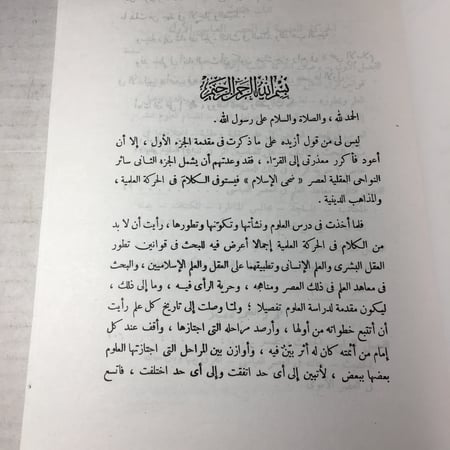 بسم الله الرحمن الرحيم
الحمد لله ، والصلاة والسلام على رسول الله .
ليس لى من قول أزيده على ما ذكرت فى مقدمة الجزء الأول ، إلا أن
أعود فأكرر معذرتى إلى القراء ، فقد وعدتهم أن يشمل الجزء الثانى سائر
النواحى العقلية لعصر « ضحى الإسلام » فيستوفى الكلام فى الحركة العلمية ،
والمذاهب الدينية .
فلما أخذت فى درس العلوم ونشأتها وتكوّنها وتطورها ، رأيت أن لا بد
من الكلام فى الحركة العلمية إجمالا أعرض فيه للبحث فى قوانين تطور
العقل البشرى والعلم الإنسانى وتطبيقهما على العقل والعلم الإسلاميين ، والبحث
فى معاهد العلم فى ذلك العصر ومناهجه ، وحرية الرأى فيه ، وما إلى ذلك ،
ليكون مقدمة لدراسة العلوم تفصيلا ؛ ولمّا وصلت إلى تاريخ كل علم رأيت
أن أتتبع خطواته من أولها ، وأرصد مراحله التى اجتازها ، وأقف عند كل
إمام من أئمته كان له أثر بيّن فيه ، وأوازن بين المراحل التى اجتازتها العلوم
بعضها ببعض ، لأتبين إلى أى حد اتفقت وإلى أى حد اختلفت ، فاتسع